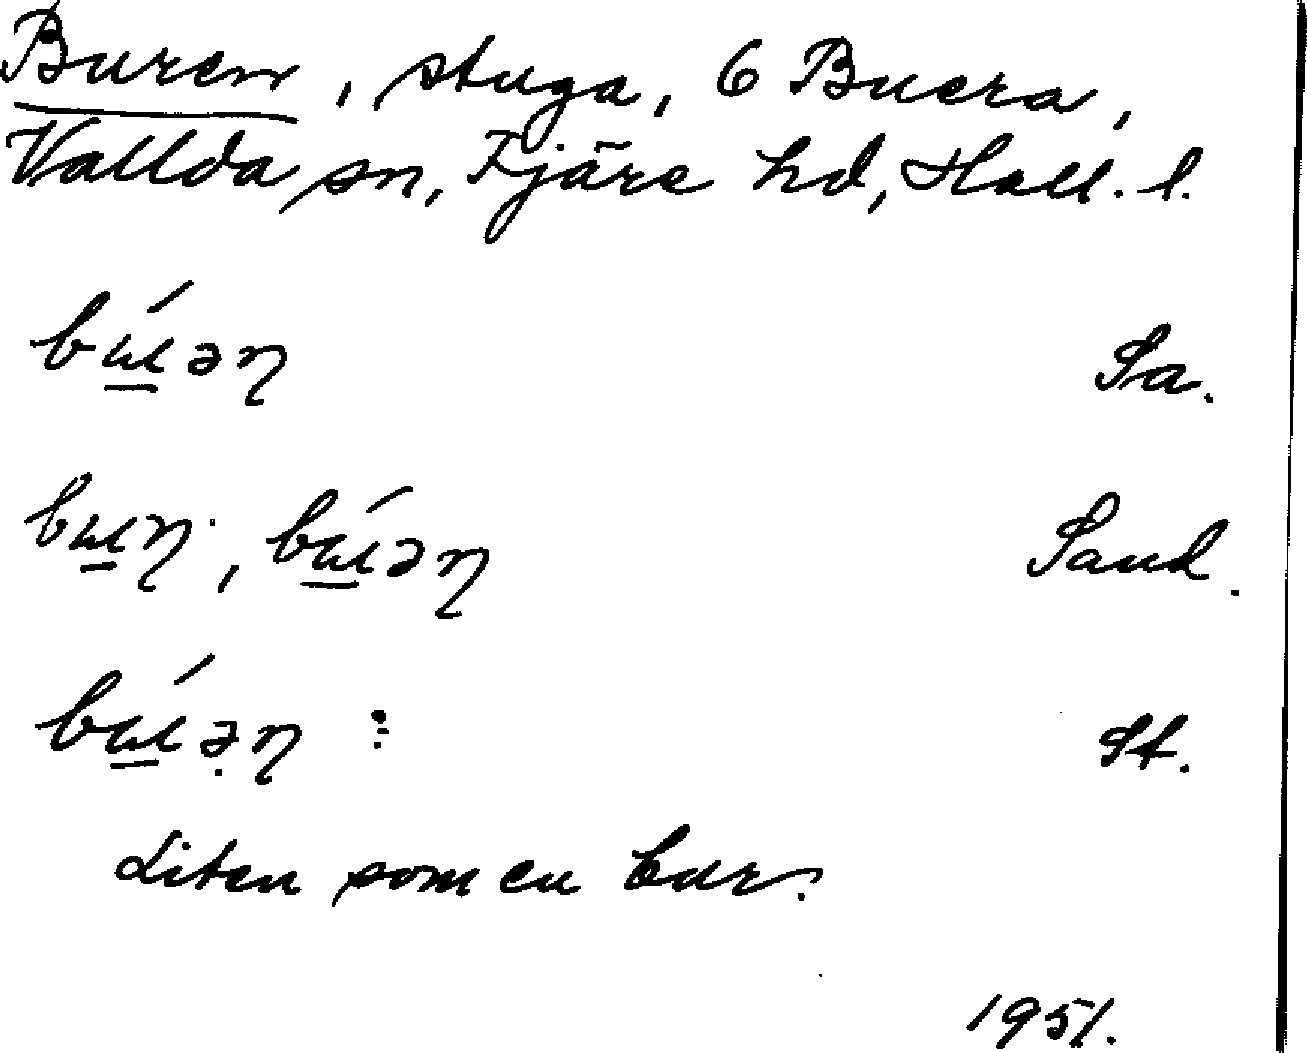 Buren, stuga, 6 Buera,
Vallda sn, Fjäre hd, Hall. l.
bú̲ən Sa.
bu̲n, bú̲ən Sand.
bú̲ə̣n : St.
Liten som en bur.
1951.